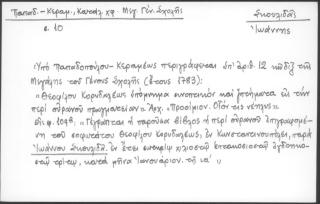 Παπαδ.-Κεραμ., Καταλ. χφ. Μεγ. Γέν. Σχολῆς
Σκουλίδας
σ. 10
Ἰωάννης
Ὑπὸ Παπαδοπούλου-Κεραμέως περιγράφεται ὑπ' ἀριθ. 12 κῶδιξ τῆς
Μεγάλης τοῦ Γένους Σχολῆς (ἔτους 1783):
"Θεοφίλου Κορυδαλέως ὑπόμνημα συνοπτικὸν καὶ ζητήματα εἰς τὴν
περὶ οὐρανοῦ πραγματείαν" Ἀρχ. "Προοίμιον.
"Γέγραπται ἡ παροῦσα βίβλος ἡ περὶ οὐρανοῦ ἐπιγραφομένη
τοῦ σοφωτάτου Θεοφίλου Κορυδαλέως, ἐν Κωνσταντινουπόλει, παρὰ
Ἰωάννου Σκουλίδα, ἐν ἔτει σωτηρίῳ χιλιοστῷ ἑπτακοσιοστῷ ὀγδοηκο-
στῷ τρίτῳ, κατὰ μῆνα Ἰανουάριον. τῇ ια'"